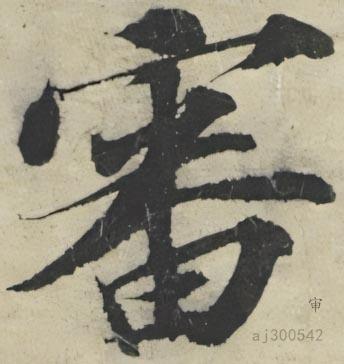 審
审
aj300542